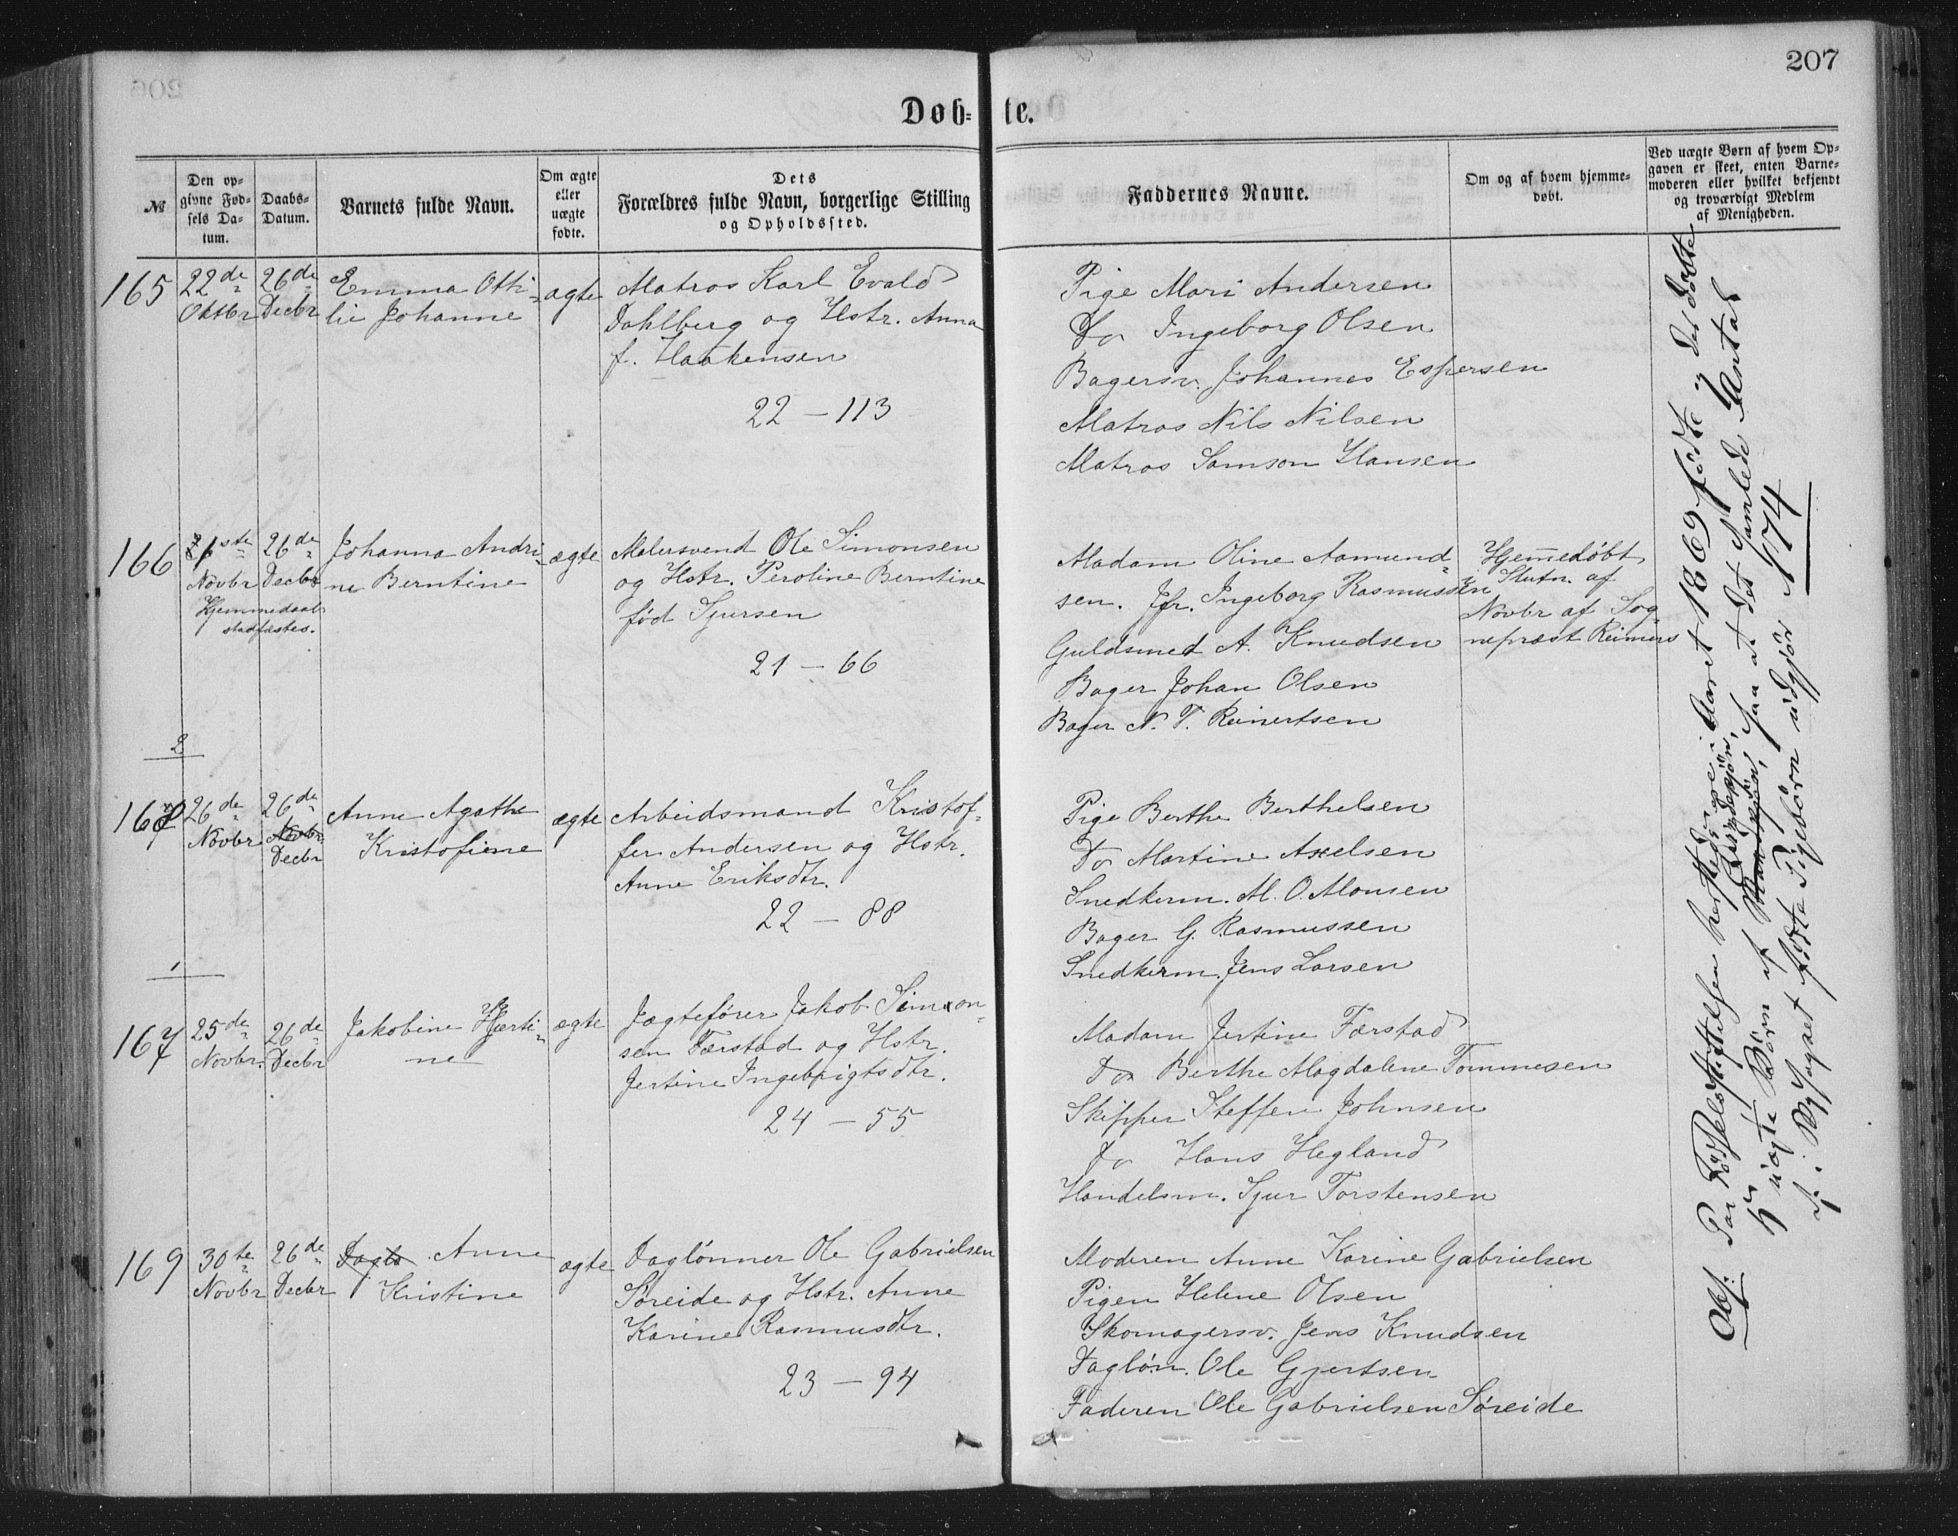 207
Døb-
te.
№
Den op-
givne Fød-
sels Da-
tum.
Daabs-
Datum.
Barnets fulde Navn.
Om ægte
eller
uægte
fødte.
Dets
Forældres fulde Navn, borgerlige Stilling
og Opholdssted.
Faddernes Navne.
Om og af hvem hjemme-
døbt.
Ved uægte Børn af hvem Op-
gaven er skeet, enten Barne-
moderen eller hvilket bekjendt
og troværdigt Medlem
af Menigheden.
165
22de
Oktbr
26de
Decbr
Emma Otti-
lie Johanne
ægte
Matros Karl Evald
Dahlberg og Hstr. Anna
f. Haakensen
22 - 113
Pige Mari Andersen
Do Ingeborg Olsen
Bagersv. Johannes Espersen
Matros Nils Nilsen
Matros Samson Hansen
166
1ste
Novbr
Hjemmedaab
stadfæstes.
26de
Decbr
Johanna Andri-
ne Berntine
ægte
Malersvend Ole Simonsen
og Hstr. Peroline Berntine
født Sjursen
21 - 66
Madam Oline Aamund-
sen. Jfr. Ingeborg Rasmussen
Guldsmed A. Knudsen
Bager Johan Olsen
Bager N. T. Reinertsen
Hjemmedøbt
i Slutn. af
Novbr af Sog-
nepræst Reimers
2
168
26de
Novbr
26de
Novbr
Decbr
Anne Agathe
Kristofine
ægte
Arbeidsmand Kristof-
fer Andersen og Hstr.
Anne Eriksdtr.
22 - 88
Pige Berthe Berthelsen
Do Martine Axelsen
Snedkerm. M. O. Monsen
Bager G. Rasmussen
Snedkerm. Jens Larsen
1
167
25de
Novbr.
26de
Decbr
Jakobine Hjerti-
ne
ægte
Jægtefører Jakob Simon-
sen Færstad og Hstr.
Jertine Ingebrigtsdtr.
24 - 55
Madam Jertine Færstad
Do Berthe Magdalene Tommesen
Skipper Steffen Johnsen
Do Hans Hegland
Handelsm. Sjur Torstensen
169
30te
Novbr
26de
Decbr
Anne
Kristine
ægte
Daglønner Ole Gabrielsen
Søreide og Hstr. Anne
Karine Rasmusdtr.
23 - 94
Moderen Anne Karine Gabrielsen
Pigen Helene Olsen
Skomagersv. Jens Knudsen
Dagløn. Ole Gjertsen
Faderen Ole Gabrielsen Søreide
Obs. Paa Fødselsstiftelsen her ere i Aaret 1869 fødte og døbte
uægte Børn af Mandkjøn, Qvindekjøn, saa at det samlede Antal
af i Byfaget fødte Pigebørn udgjør 174